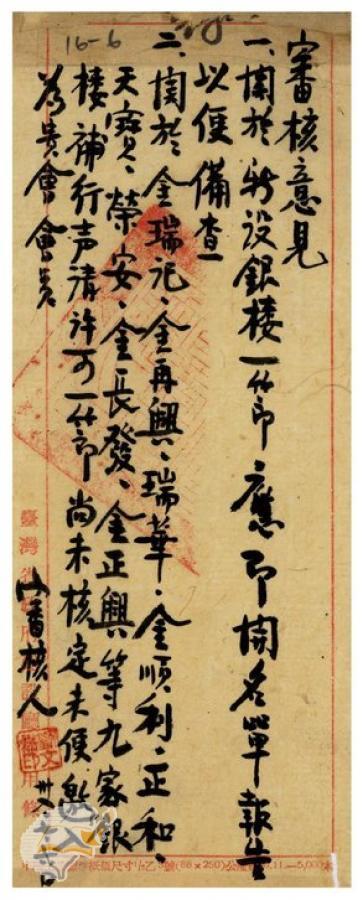 16-6
審核意見
一、関於新設銀楼一節應即開名單報告
以便備查
二、関於金瑞記、金再興、瑞華、金順利、正和、
天寶、榮安、金長發、金正興等九家銀
楼補行声請許可一節尚未核定未便
為貴會會員
審核人
臺灣省